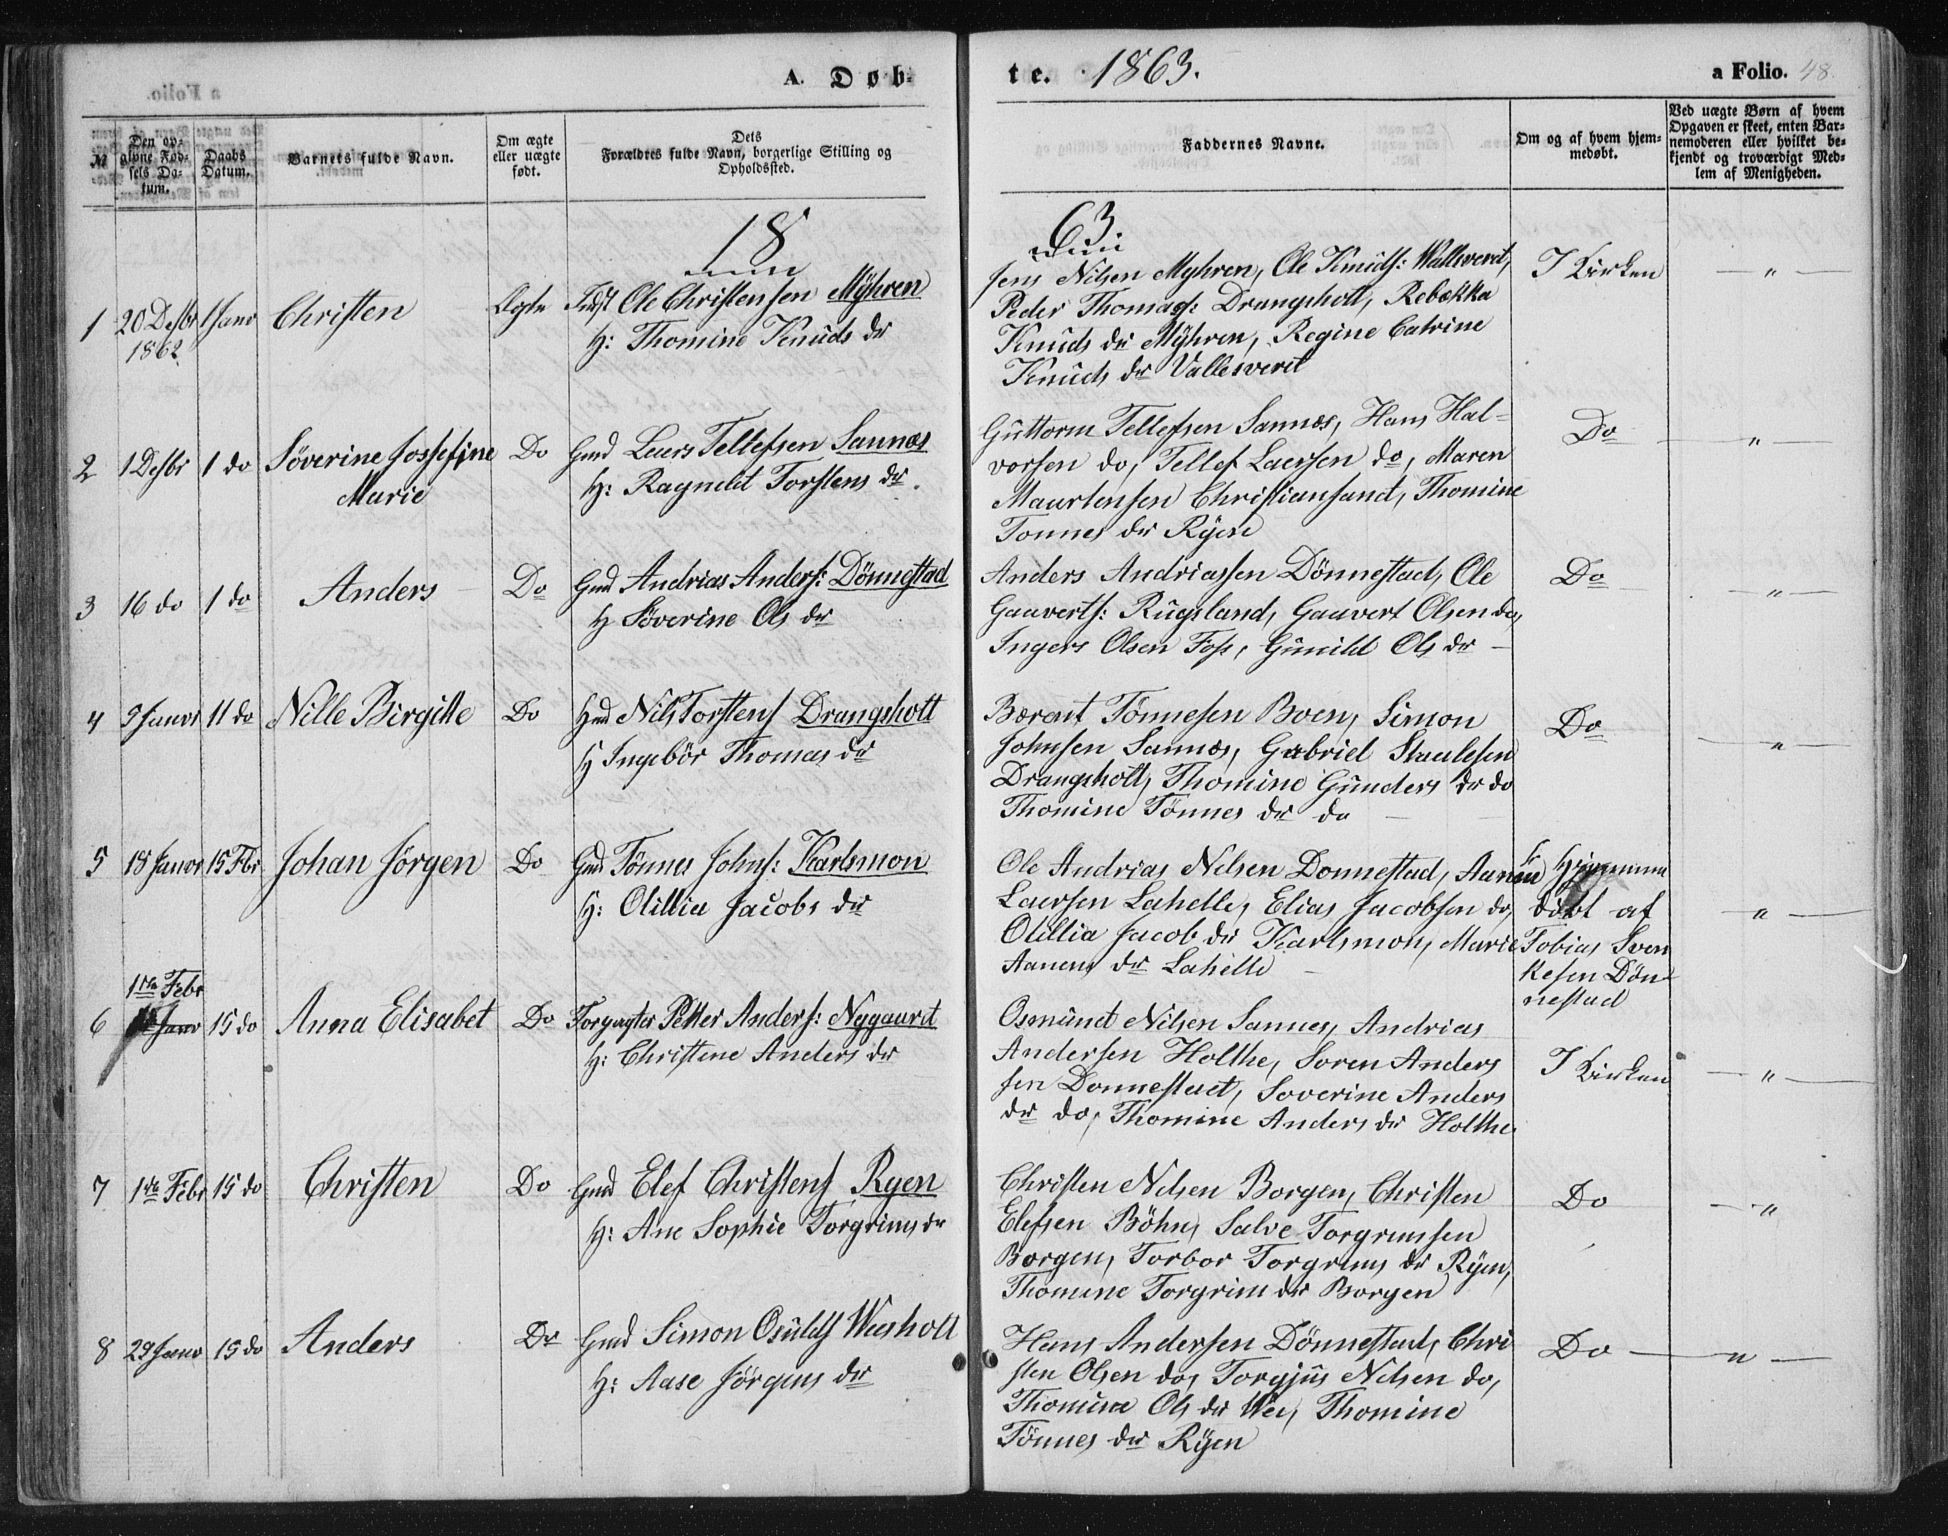 A. Døb-
te. 1863.
a Folio. 48.
№
Den op-
givne Fød-
sels Da-
tum.
Daabs
Datum.
Barnets fulde Navn.
Om ægte
eller uægte
født.
Dets
Forældres fulde Navn, borgerlige Stilling og
Opholdssted.
Faddernes Navne.
Om og af hvem hjem-
medøbt.
Ved uægte Børn af hvem
Opgaven er skeet, enten Bar-
nemoderen eller hvilket be-
kjendt og troværdigt Med-
lem af Menigheden.
18 63.
1 20 Desbr 1 Janr Christen Ægte Ole Christensen Myhren
1862
H: Thomine Knuds dr
Jens Nilsen Myhren, Ole Knuds: Wallesverd,
Peder Thomas: Drangsholt, Rebækka
Knuds dr Myhren, Regine Catrine
Knuds dr Vallesverd
I Kirken — " —
2 1 Desbr 1 do Söverine Jossefine Do Gmd Laers Tellefsen Sannæs
Marie
H: Ragnild Torstens dr.
Guttorm Tellefsen Sannæs, Hans Hal-
vorsen do, Tellef Laersen do, Maren
Maartensen Christiansand, Thomine
Tonnes dr Ryen
Do — " —
3 16 do 1 do Anders Do Gmd Andrias Anders: Dönnestad
H Söverine Ols dr
Anders Andriassen Dönnestad, Ole
Gauverts: Rugsland, Gauvert Olsen do,
Ingers Olsen Foss, Gunild Ols dr —
Do — " —
4 9 Janr 11 do Nille Birgitte Do Hmd Nils Torstens Drangsholt
H Ingebör Thomas dr
Bærent Tönnesen Boen, Simon
Johnsen Sannæs, Gabriel Staalesen
Drangsholt, Thomine Gunders dr do
Thomine Tönnes dr do —
Do — " —
5 18 Janr 15 Fbr Johan Jörgen Do Gmd Tönnes Johns: Karlsmon
H: Olillia Jacobs dr
Ole Andrias Nilsen Donnestad, Aanen
Laersen Lahelle, Elias Jacobsen do,
Olillia Jacob dr Karlsmon, Marie
Aanens dr Lahelle —
Hjemme
döbt af
Tobias Sven
kesen Dön
nestad
— " —
1ste Febr
6 Janr 15 do Anna Elisabet Do Forpagter Petter Anders: Nygaard
H: Christene Anders dr
Osmund Nilsen Sannes, Andrias
Andersen Holthe, Soren Anders
sen Donnestad, Soverine Anders
dr do, Thomine Anders dr Holthe
I Kirken — " —
7 1ste Febr 15 do Christen Do Gmd Elef Christens Ryen
H: Ane Sophie Torgrims dr
Christen Nilsen Borgen, Christen
Elefsen Böhn, Salve Torgrimsen
Borgen, Torbor Torgrims dr Ryen,
Thomine Torgrim dr Borgen
Do — "
8 29 Janr 15 do Anders Do Gmd Simon Osulds Weesholt
H: Aase Jörgens dr
Hans Andersen Dönnestad, Chri
sten Olsen do, Torgjus Nilsen do,
Thomine Ols dr Wee, Thomine
Tönnes dr Ryen
Do — " —